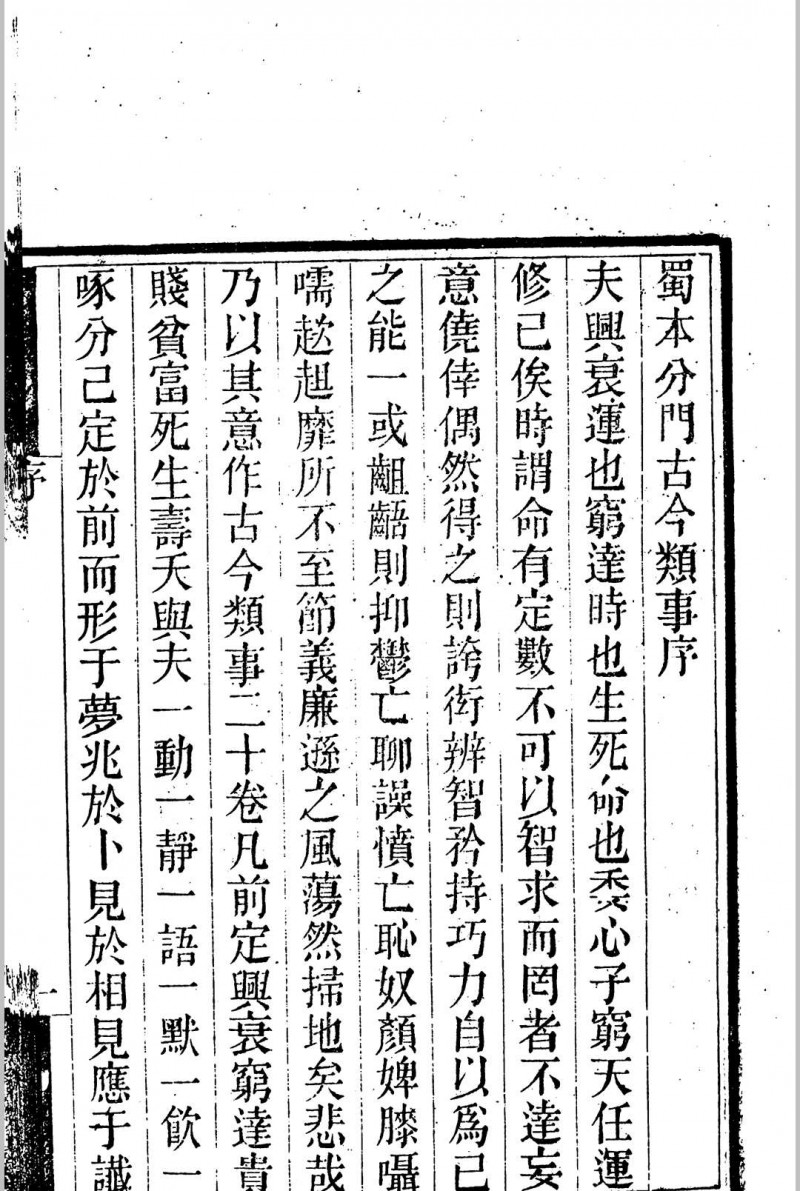 蜀本分門古今類事序
夫興衰運也窮達時也生死命也委心子窮天任運
修己俟時謂命有定數不可以智求而罔者不達妄
意僥倖偶然得之則誇衒辨智矜持巧力自以爲己
之能一或齟齬則抑鬱亡聊譟憤亡恥奴顏婢膝囁
嚅趑趄靡所不至節義廉遜之風蕩然掃地矣悲哉
乃以其意作古今類事二十卷凡前定興衰窮達貴
賤貧富死生壽夭與夫一動一靜一語一默一飮一
啄分己定於前而形于夢兆於卜見於相見應于讖
序
一